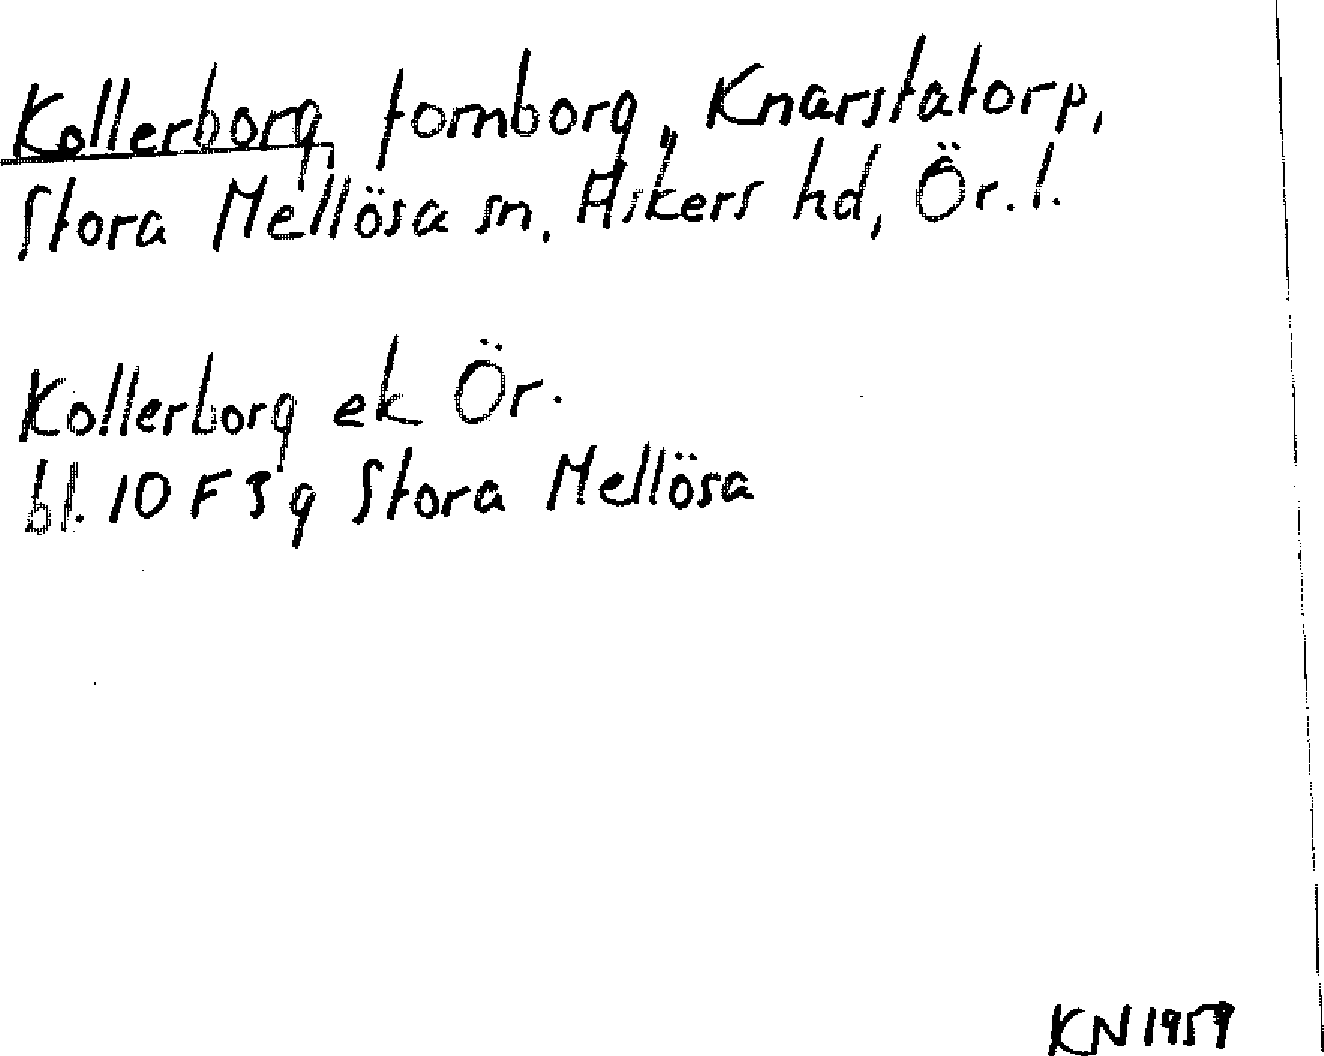 Kollerborg, fornborg, Knarstatorp,
Stora Mellösa sn, Askers hd, Ör. l.
Kollerborg ek Ör.
bl. 10 F 3 g Stora Mellösa
KN 1959